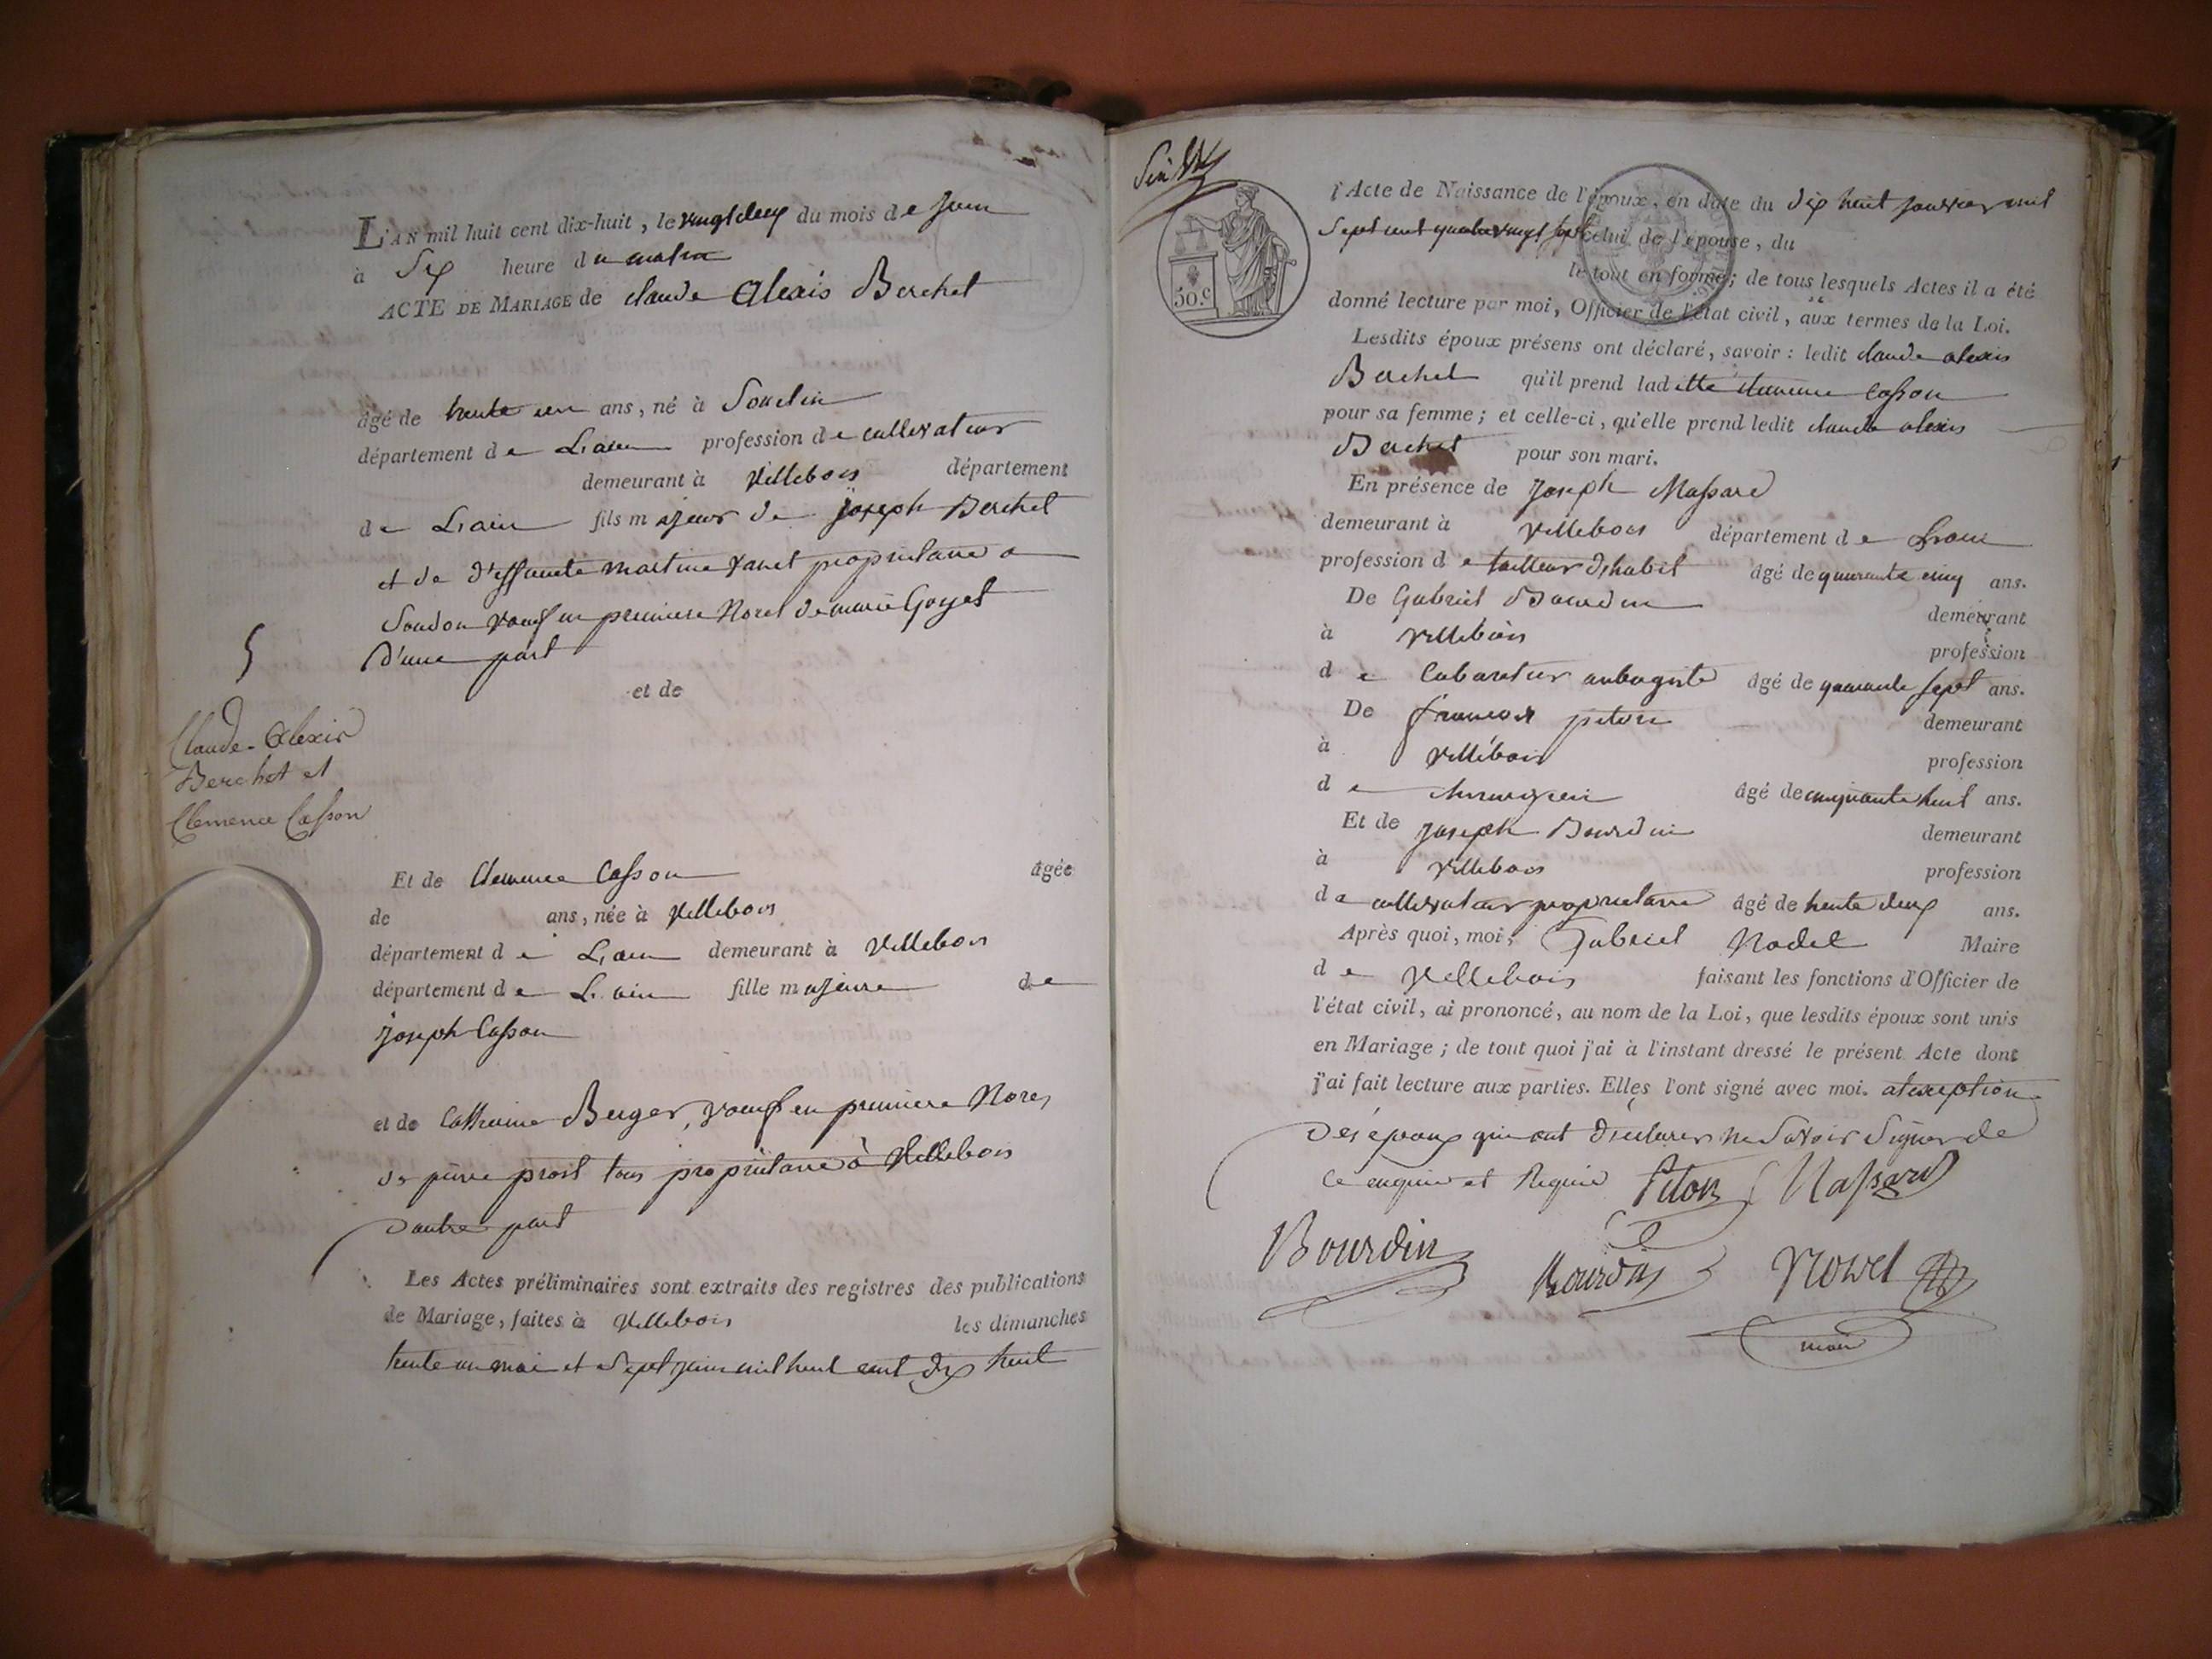 L'AN mil huit cent dix-huit, le vingt deux du mois de Juin
à Six heure du matin
ACTE DE MARIAGE de claude Alexis Berchet
âgé de trente un ans, né à Soudon
département de L'ain profession de cultivateur
demeurant à Villebois département
de L'ain fils majeur de joseph Berchet
et de deffunte martine propriétaire a
Soudon veuf en premiere Noces de marie Goyet
D'une part
et de
5
Claude-Alexis
Berchet et
Clemence Casson
Et de Clemence Casson âgée
de ans, née à Villebois
département de L'ain demeurant à Villebois
département de L'ain fille majeure de
joseph Casson
et de Catherine Berger, veuf en premiere Noces
de pierre prost tous propriétaire à Villebois
d'autre part
Les Actes préliminaires sont extraits des registres des publications
de Mariage, faites à Villebois les dimanches
trente un mai et Sept juin mil huit cent dix huit
50.c
l'Acte de Naissance de l'époux, en date du dix huit janvier mil
Sept cent quatre vingt sept celui de l'épouse, du
le tout en forme; de tous lesquels Actes il a été
donné lecture par moi, Officier de l'état civil, aux termes de la Loi.
Lesdits époux présens ont déclaré, savoir: ledit claude alexis
Berchet qu'il prend laditte clemence Casson
pour sa femme; et celle-ci, qu'elle prend ledit claude alexis
Berchet pour son mari.
En présence de Joseph Massard
demeurant à Villebois département de L'ain
profession de tailleur d'habit âgé de quarante cinq ans.
De Gabriel Bourdin demeurant
à Villebois profession
de Cabaretier aubergiste âgé de quarante sept ans.
De francois piton demeurant
à Villebois profession
de chirurgien âgé de cinquante huit ans.
Et de Joseph Bourdin demeurant
à Villebois profession
de cultivateur propriétaire âgé de trente deux ans.
Après quoi, moi, Gabriel Nodet Maire
de Villebois faisant les fonctions d'Officier de
l'état civil, ai prononcé, au nom de la Loi, que lesdits époux sont unis
en Mariage; de tout quoi j'ai à l'instant dressé le présent Acte dont
j'ai fait lecture aux parties. Elles l'ont signé avec moi. a l'exeption
des epoux qui ont declarer ne Savoir Signer de
ce enquis et Requis Piton Massard
Bourdin Bourdin
maire